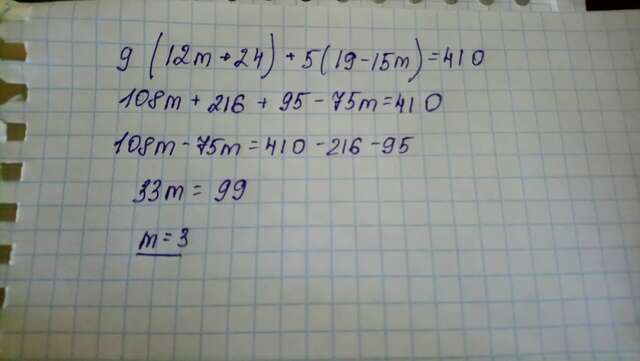 9 (12m + 24) + 5(19 - 15m) = 410
108m + 216 + 95 - 75m = 410
108m - 75m = 410 - 216 - 95
33m = 99
m = 3